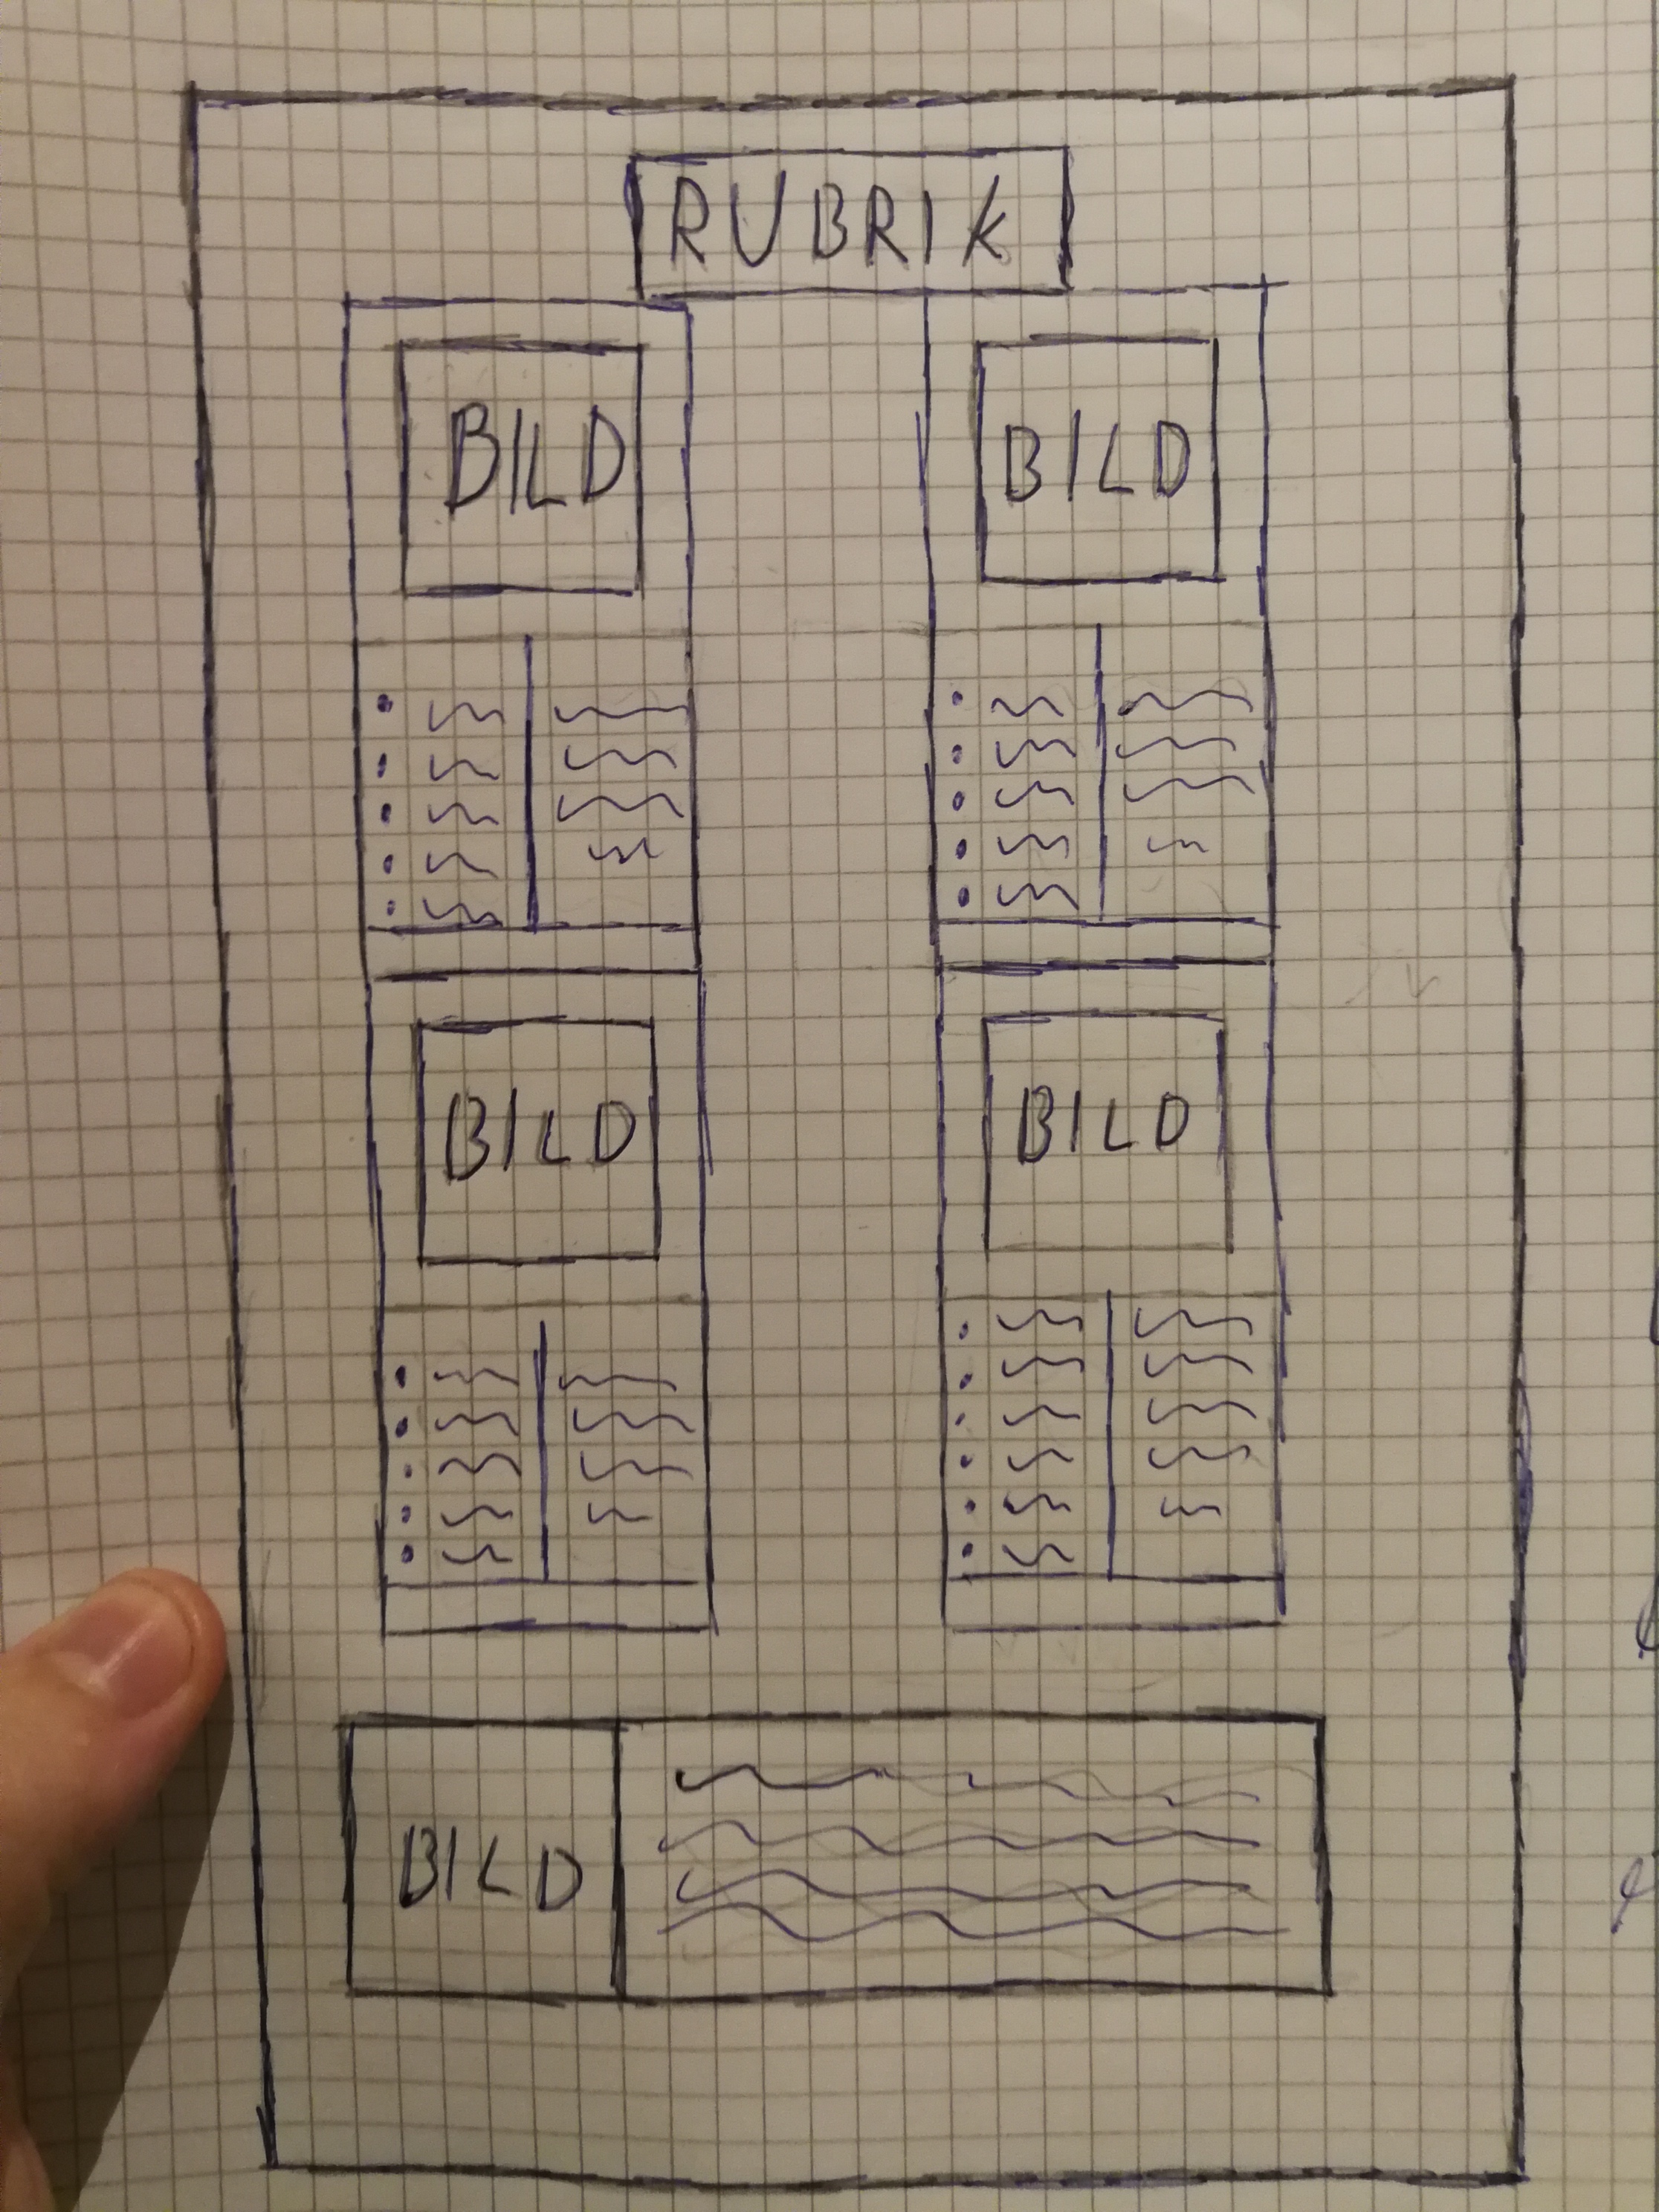 RUBRIK
BILD BILD
BILD BILD
BILD